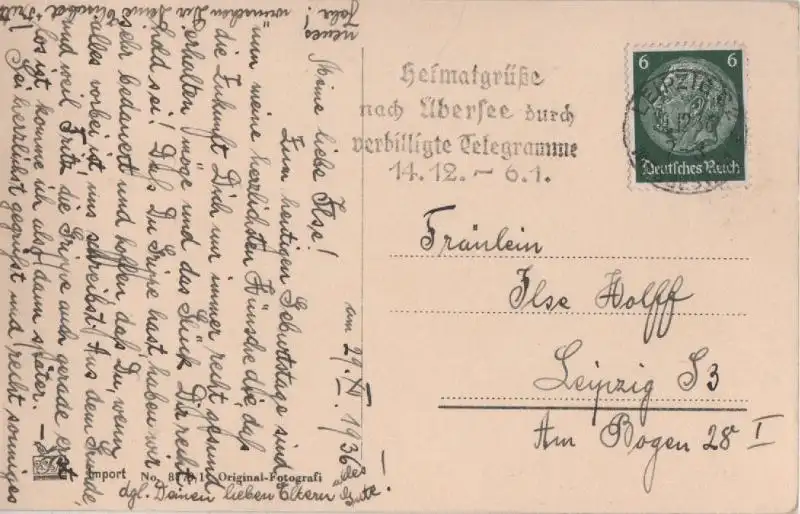 Heimatgrüße
nach Übersee durch
verbilligte Telegramme
14.12. – 6.1.
6 6
Deutsches Reich
LEIPZIG
Fräulein
Ilse Holff
Leipzig S3
Am Bogen 28 I
am 29. XII. 1936
Meine liebe Ilse!
Zum heutigen Geburtstage sind
nun meine herzlichsten Wünsche die, daß
die Zukunft Dich nur immer recht gesund
erhalten möge und das Glück Dir recht
hold sei! Daß Du Grippe hast, haben wir
sehr bedauert und hoffen daß Du, wenn
alles vorbei ist, uns schreibst. Aus dem Grunde,
und weil Fritz die Grippe auch gerade erst
los ist, komme ich also dann später. –
Sei herzlichst gegrüßt und recht sonniges
neues
Jahr! wünschen Dir Deine Elisabet Fritz
dgl. Deinen lieben Eltern alles
Gute!
Import No. 8179/1 Original-Fotografi